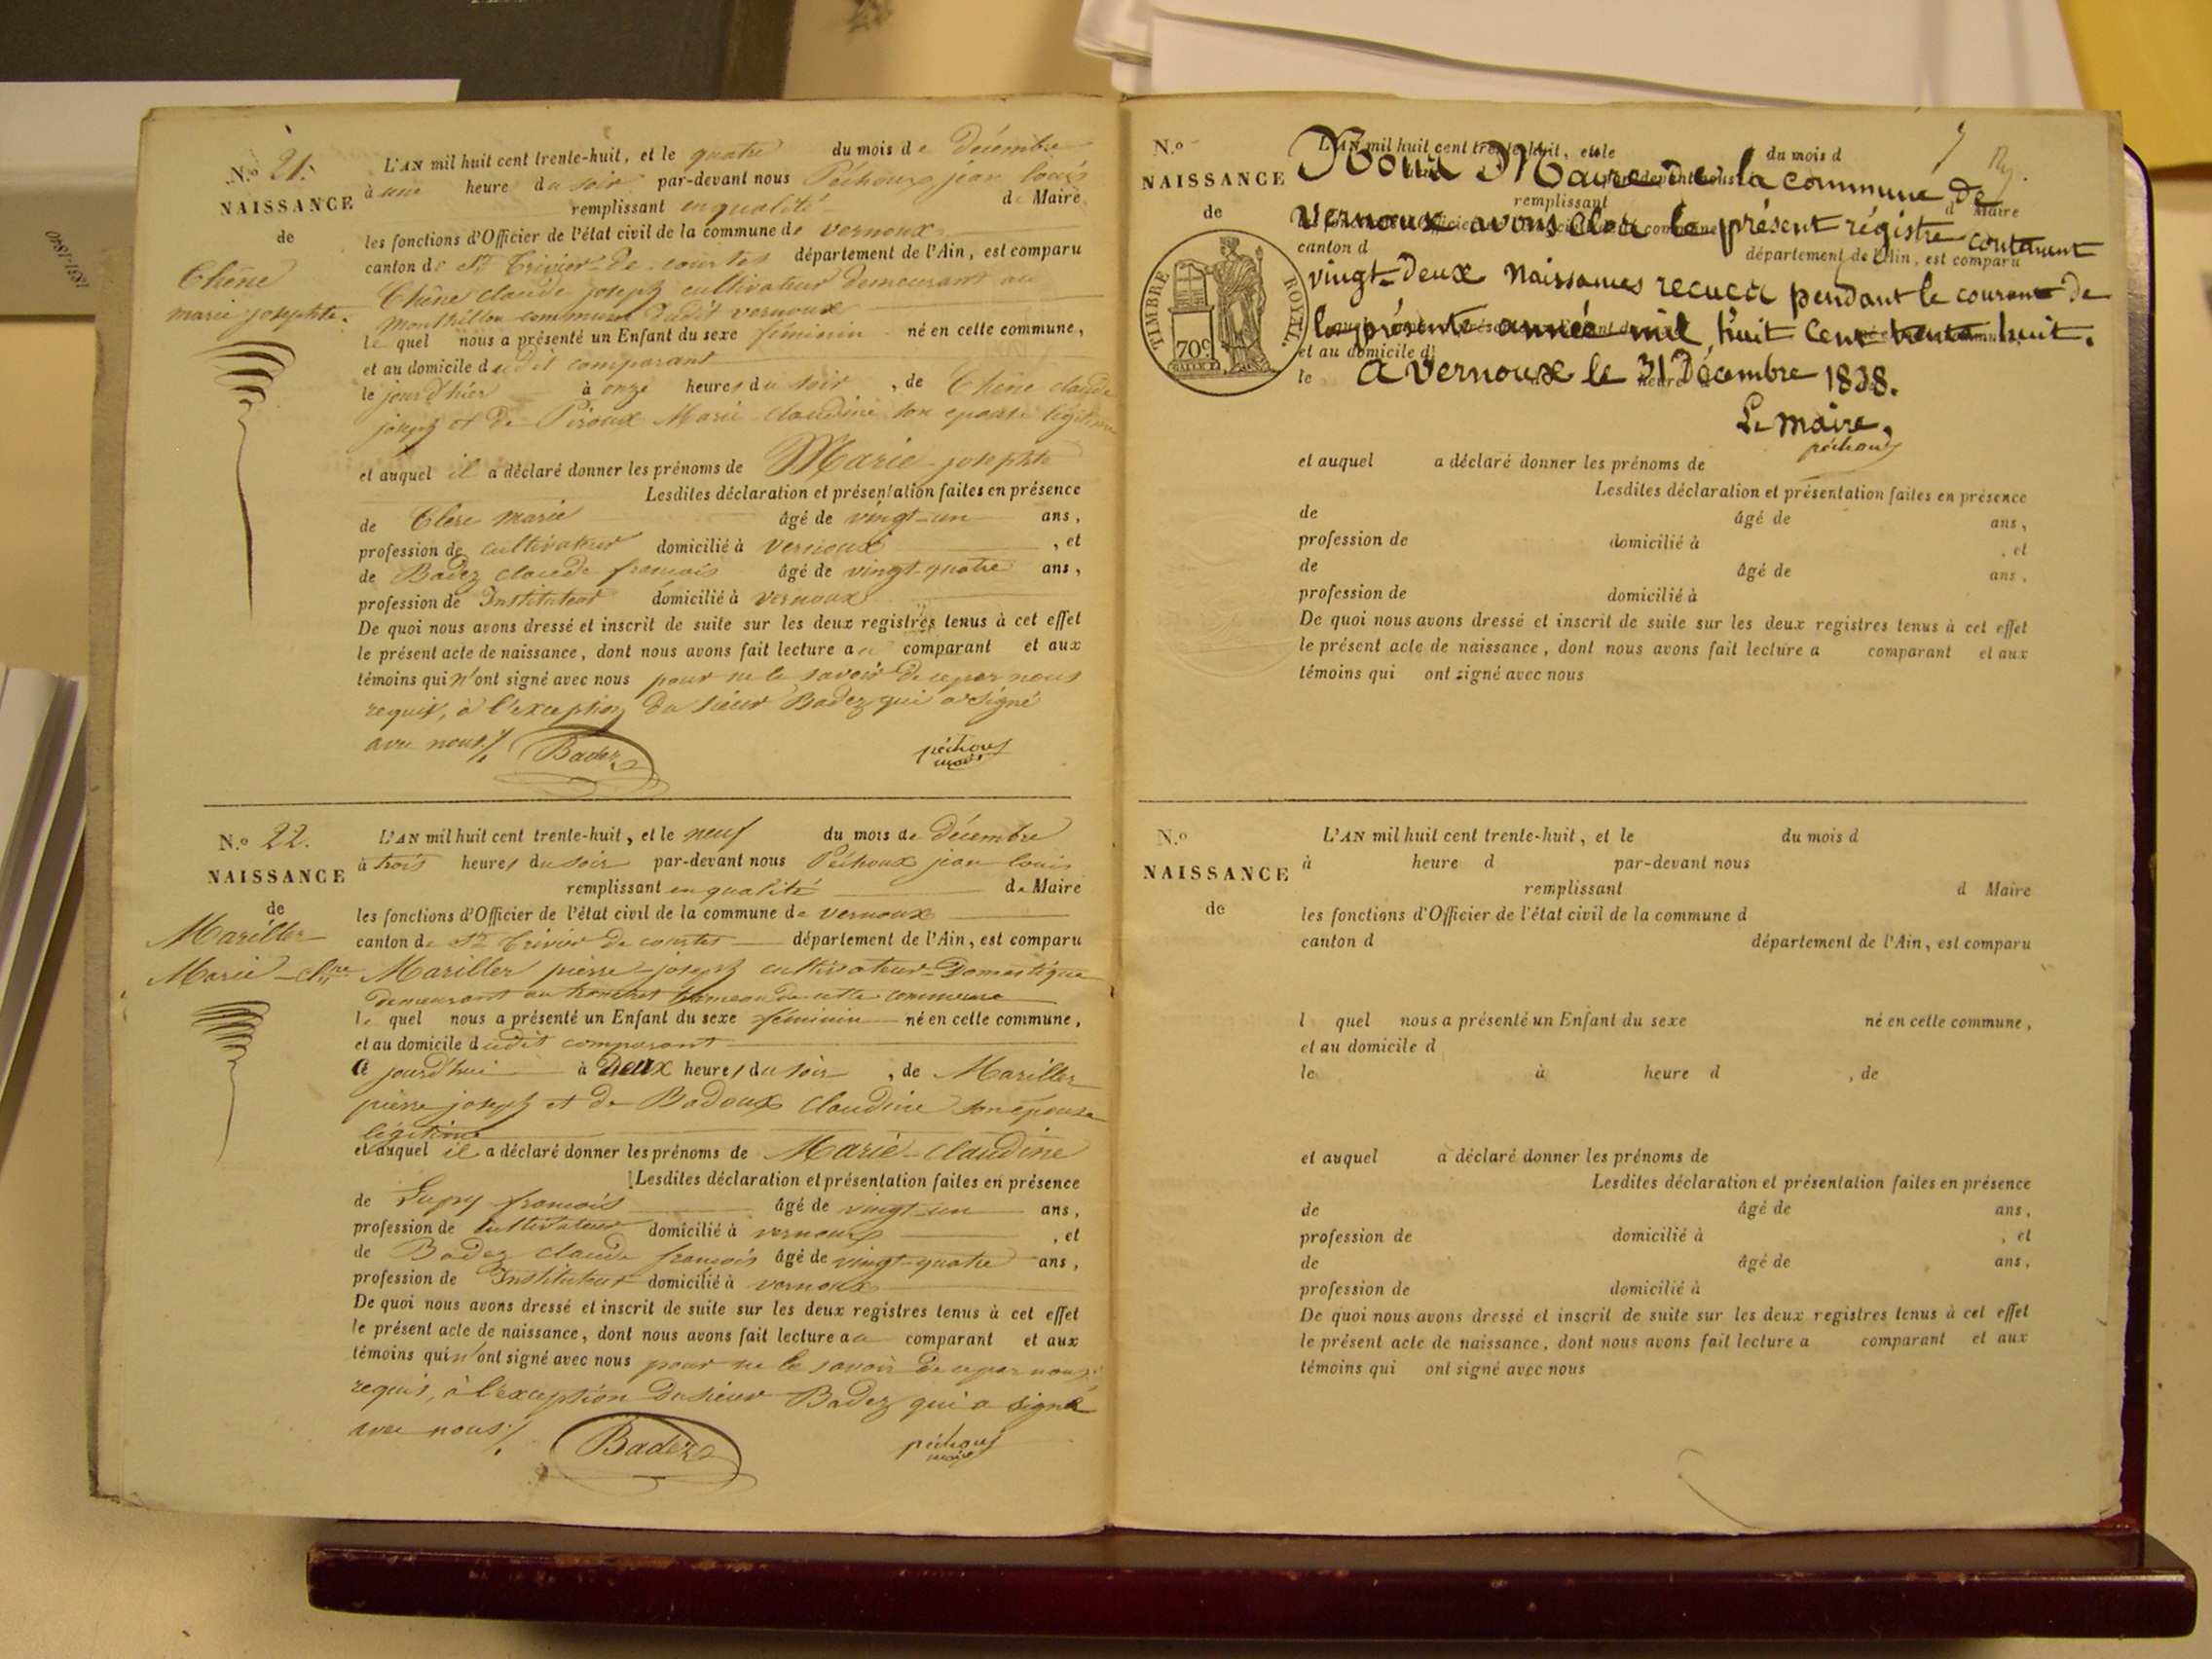 N.º 21.
NAISSANCE
de
Chêne
marie josephte.
L'AN mil huit cent trente-huit, et le quatre du mois de décembre
à une heure du soir par-devant nous Péchoux jean louis
remplissant en qualité de Maire
les fonctions d'Officier de l'état civil de la commune de vernoux
canton de St Trivier de courtes département de l'Ain, est comparu
Chêne claude joseph cultivateur demeurant au
commune dudit vernoux
le quel nous a présenté un Enfant du sexe féminin né en cette commune,
et au domicile dudit comparant
le jour d'hier à onze heures du soir, de Chêne claude
joseph et de Piroux Marie Claudine son epouse légitime
et auquel il a déclaré donner les prénoms de Marie josephte
Lesdites déclaration et présentation faites en présence
de Clerc marie âgé de vingt-un ans,
profession de cultivateur domicilié à vernoux, et
de Badez claude françois âgé de vingt-quatre ans,
profession de Instituteur domicilié à vernoux
De quoi nous avons dressé et inscrit de suite sur les deux registres tenus à cet effet
le présent acte de naissance, dont nous avons fait lecture au comparant et aux
témoins qui n'ont signé avec nous pour ne le savoir de ce par nous
requis, à l'exception du sieur Badez qui a signé
avec nous ./.
Badez
péchoux
maire
N.º 22.
NAISSANCE
de
Mariller
Marie-Clne
L'AN mil huit cent trente-huit, et le neuf du mois de décembre
à trois heures du soir par-devant nous Péchoux jean louis
remplissant en qualité de Maire
les fonctions d'Officier de l'état civil de la commune de vernoux
canton de St Trivier de courtes département de l'Ain, est comparu
Mariller pierre-joseph cultivateur-Domestique
demeurant au hameau de cette commune
le quel nous a présenté un Enfant du sexe féminin né en cette commune,
et au domicile dudit comparant
ce jourd'hui à Deux heures du soir, de Mariller
pierre joseph et de Badoux Claudine son épouse
légitime
et auquel il a déclaré donner les prénoms de Marie-claudine
Lesdites déclaration et présentation faites en présence
de françois âgé de vingt-un ans,
profession de cultivateur domicilié à vernoux, et
de Badez claude françois âgé de vingt-quatre ans,
profession de Instituteur domicilié à vernoux
De quoi nous avons dressé et inscrit de suite sur les deux registres tenus à cet effet
le présent acte de naissance, dont nous avons fait lecture au comparant et aux
témoins qui n'ont signé avec nous pour ne le savoir de ce par nous
requis, à l'exception du sieur Badez qui a signé
avec nous ./.
Badez
péchoux
maire
N.º
NAISSANCE
de
TIMBRE ROYAL.
70c
L'AN mil huit cent trente-huit, et le du mois d
Nous Maire de la commune de
par-devant nous
remplissant d Maire
vernoux avons clos le présent régistre contenant
canton d département de l'Ain, est comparu
vingt-deux Naissances recues pendant le courant de
la présente année mil huit cent trente huit.
et au domicile d
le heure
a vernoux le 31 Décembre 1838.
Le maire,
péchoux
et auquel a déclaré donner les prénoms de
Lesdites déclaration et présentation faites en présence
de âgé de ans,
profession de domicilié à , et
de âgé de ans,
profession de domicilié à
De quoi nous avons dressé et inscrit de suite sur les deux registres tenus à cet effet
le présent acte de naissance, dont nous avons fait lecture a comparant et aux
témoins qui ont signé avec nous
N.º
NAISSANCE
de
L'AN mil huit cent trente-huit, et le du mois d
à heure d par-devant nous
remplissant d Maire
les fonctions d'Officier de l'état civil de la commune d
canton d département de l'Ain, est comparu
l quel nous a présenté un Enfant du sexe né en cette commune,
et au domicile d
le à heure d , de
et auquel a déclaré donner les prénoms de
Lesdites déclaration et présentation faites en présence
de âgé de ans,
profession de domicilié à , et
de âgé de ans,
profession de domicilié à
De quoi nous avons dressé et inscrit de suite sur les deux registres tenus à cet effet
le présent acte de naissance, dont nous avons fait lecture a comparant et aux
témoins qui ont signé avec nous